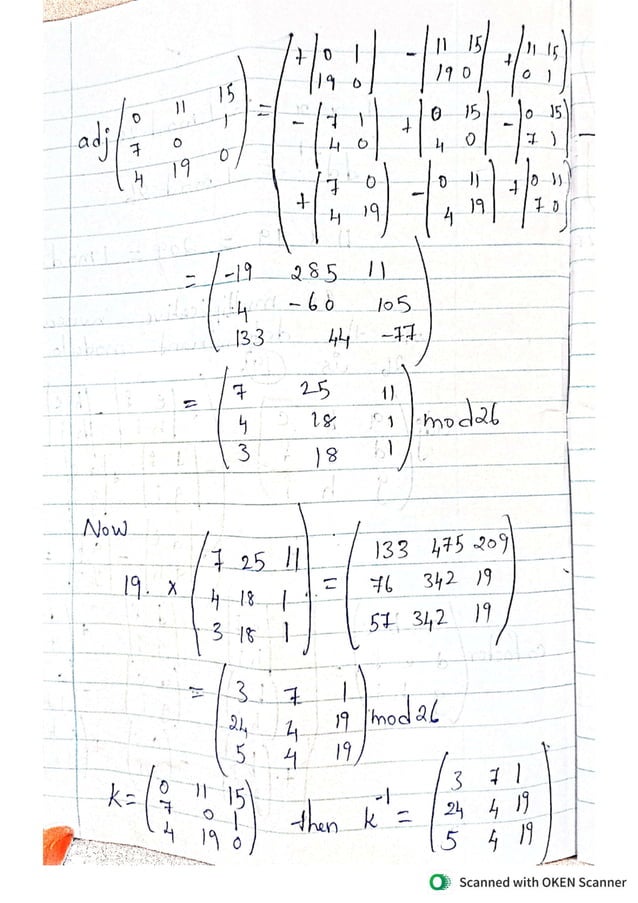 adj (0 11 15; 7 0 1; 4 19 0) = (+|0 1; 19 0| -|11 15; 19 0| +|11 15; 0 1|; -|7 1; 4 0| +|0 15; 4 0| -|0 15; 7 1|; +|7 0; 4 19| -|0 11; 4 19| +|0 11; 7 0|)
= (-19 285 11; 4 -60 105; 133 44 -77)
= (7 25 11; 4 18 1; 3 18 1) mod 26
Now
19. x (7 25 11; 4 18 1; 3 18 1) = (133 475 209; 76 342 19; 57 342 19)
= (3 7 1; 24 4 19; 5 4 19) mod 26
k = (0 11 15; 7 0 1; 4 19 0) then k^-1 = (3 7 1; 24 4 19; 5 4 19)
Scanned with OKEN Scanner